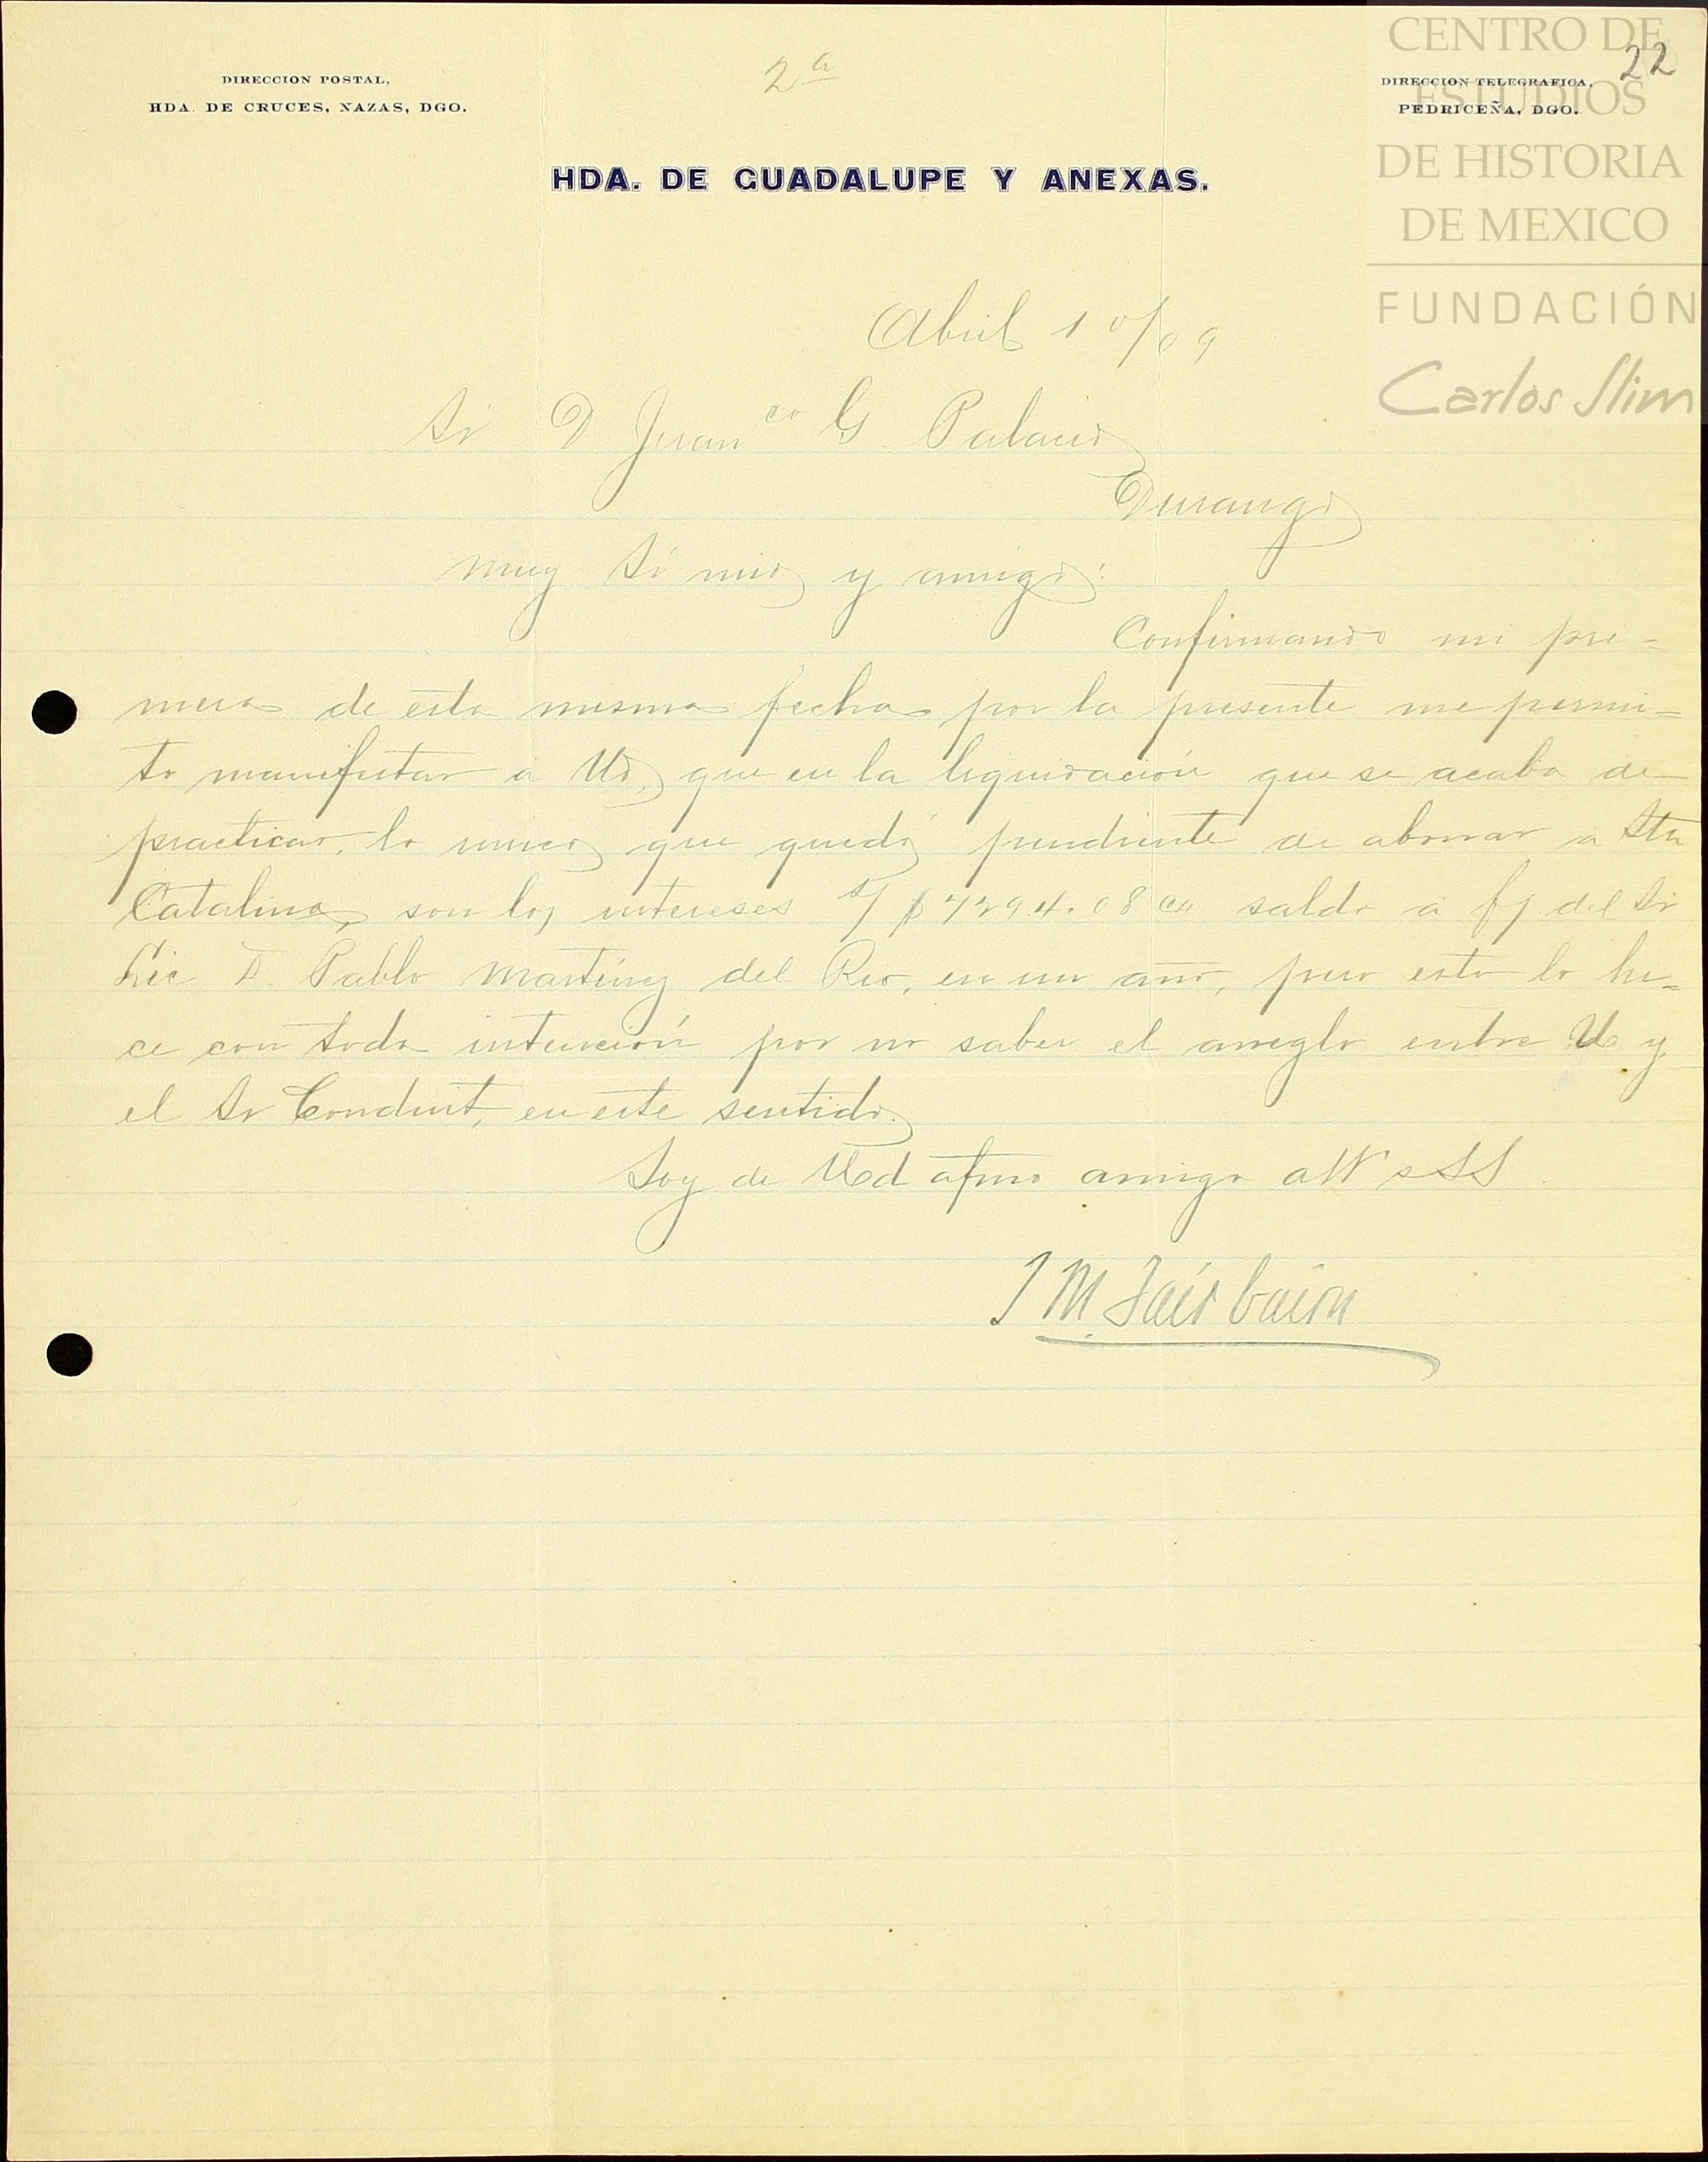 DIRECCION POSTAL,
HDA. DE CRUCES, NAZAS, DGO.
2ª
22
DIRECCION TELEGRAFICA,
PEDRICEÑA, DGO.
CENTRO DE
ESTUDIOS
DE HISTORIA
DE MEXICO
FUNDACIÓN
Carlos Slim
HDA. DE GUADALUPE Y ANEXAS.
Abril 10/09
Sr D Franco G. Palacio
Durango
Muy Sr mio y amigo:
Confirmando mi pri=
mera de esta misma fecha por la presente me permi=
to manifestar a Ud, que en la liquidación que se acaba de
practicar, lo unico que quedó pendiente de abonar a Sta
Catalina, son los intereses s/ $7294.08 saldo a f/ del Sr
Lic D. Pablo Martínez del Rio, en un año, pero esto lo hi=
ce con toda intención por no saber el arreglo entre U y
el Sr Conduit, en este sentido.
Soy de Ud afmo amigo att° s SS
J M Fairbairn